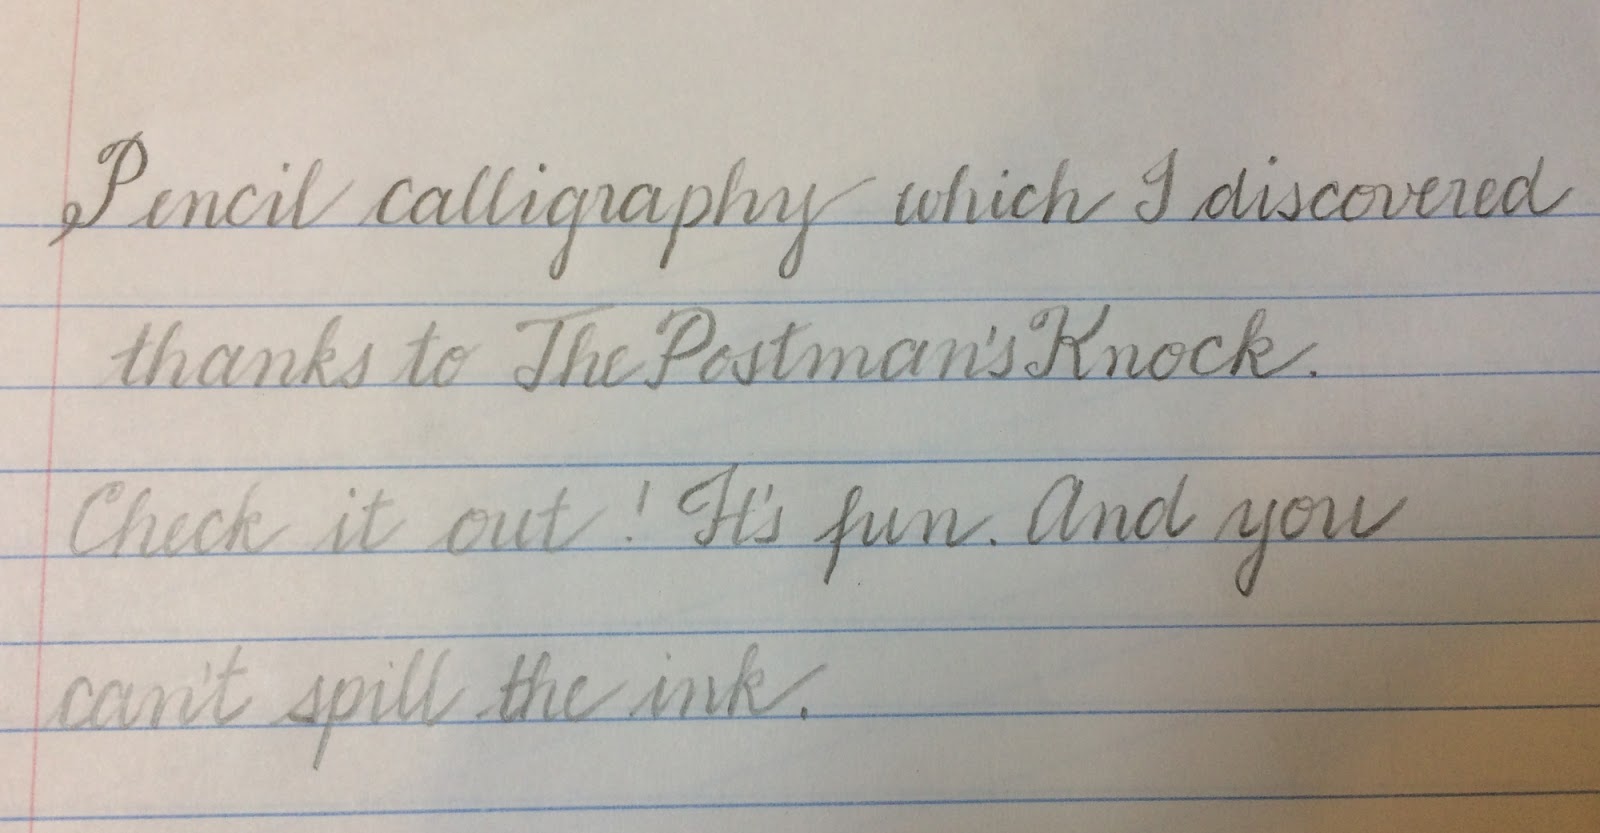 Pencil calligraphy which I discovered
thanks to The Postman's Knock.
Check it out! It's fun. And you
can't spill the ink.